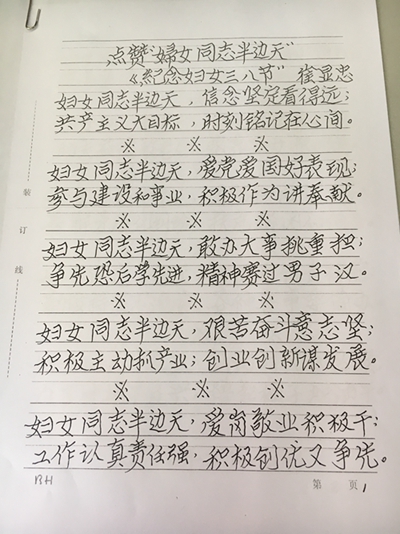 点赞“妇女同志半边天”
《纪念妇女三八节” 徐显忠
妇女同志半边天，信念坚定看得远；
共产主义大目标，时刻铭记在心间。
※ ※ ※
妇女同志半边天，爱党爱国好表现；
参与建设和事业，积极作为讲奉献。
※ ※ ※
妇女同志半边天，敢办大事挑重担；
争先恐后学先进，精神赛过男子汉。
※ ※ ※
妇女同志半边天，艰苦奋斗意志坚；
积极主动抓产业；创业创新谋发展。
※ ※ ※
妇女同志半边天，爱岗敬业积极干；
工作认真责任强，积极创优又争先。
第 页1
装
订
线